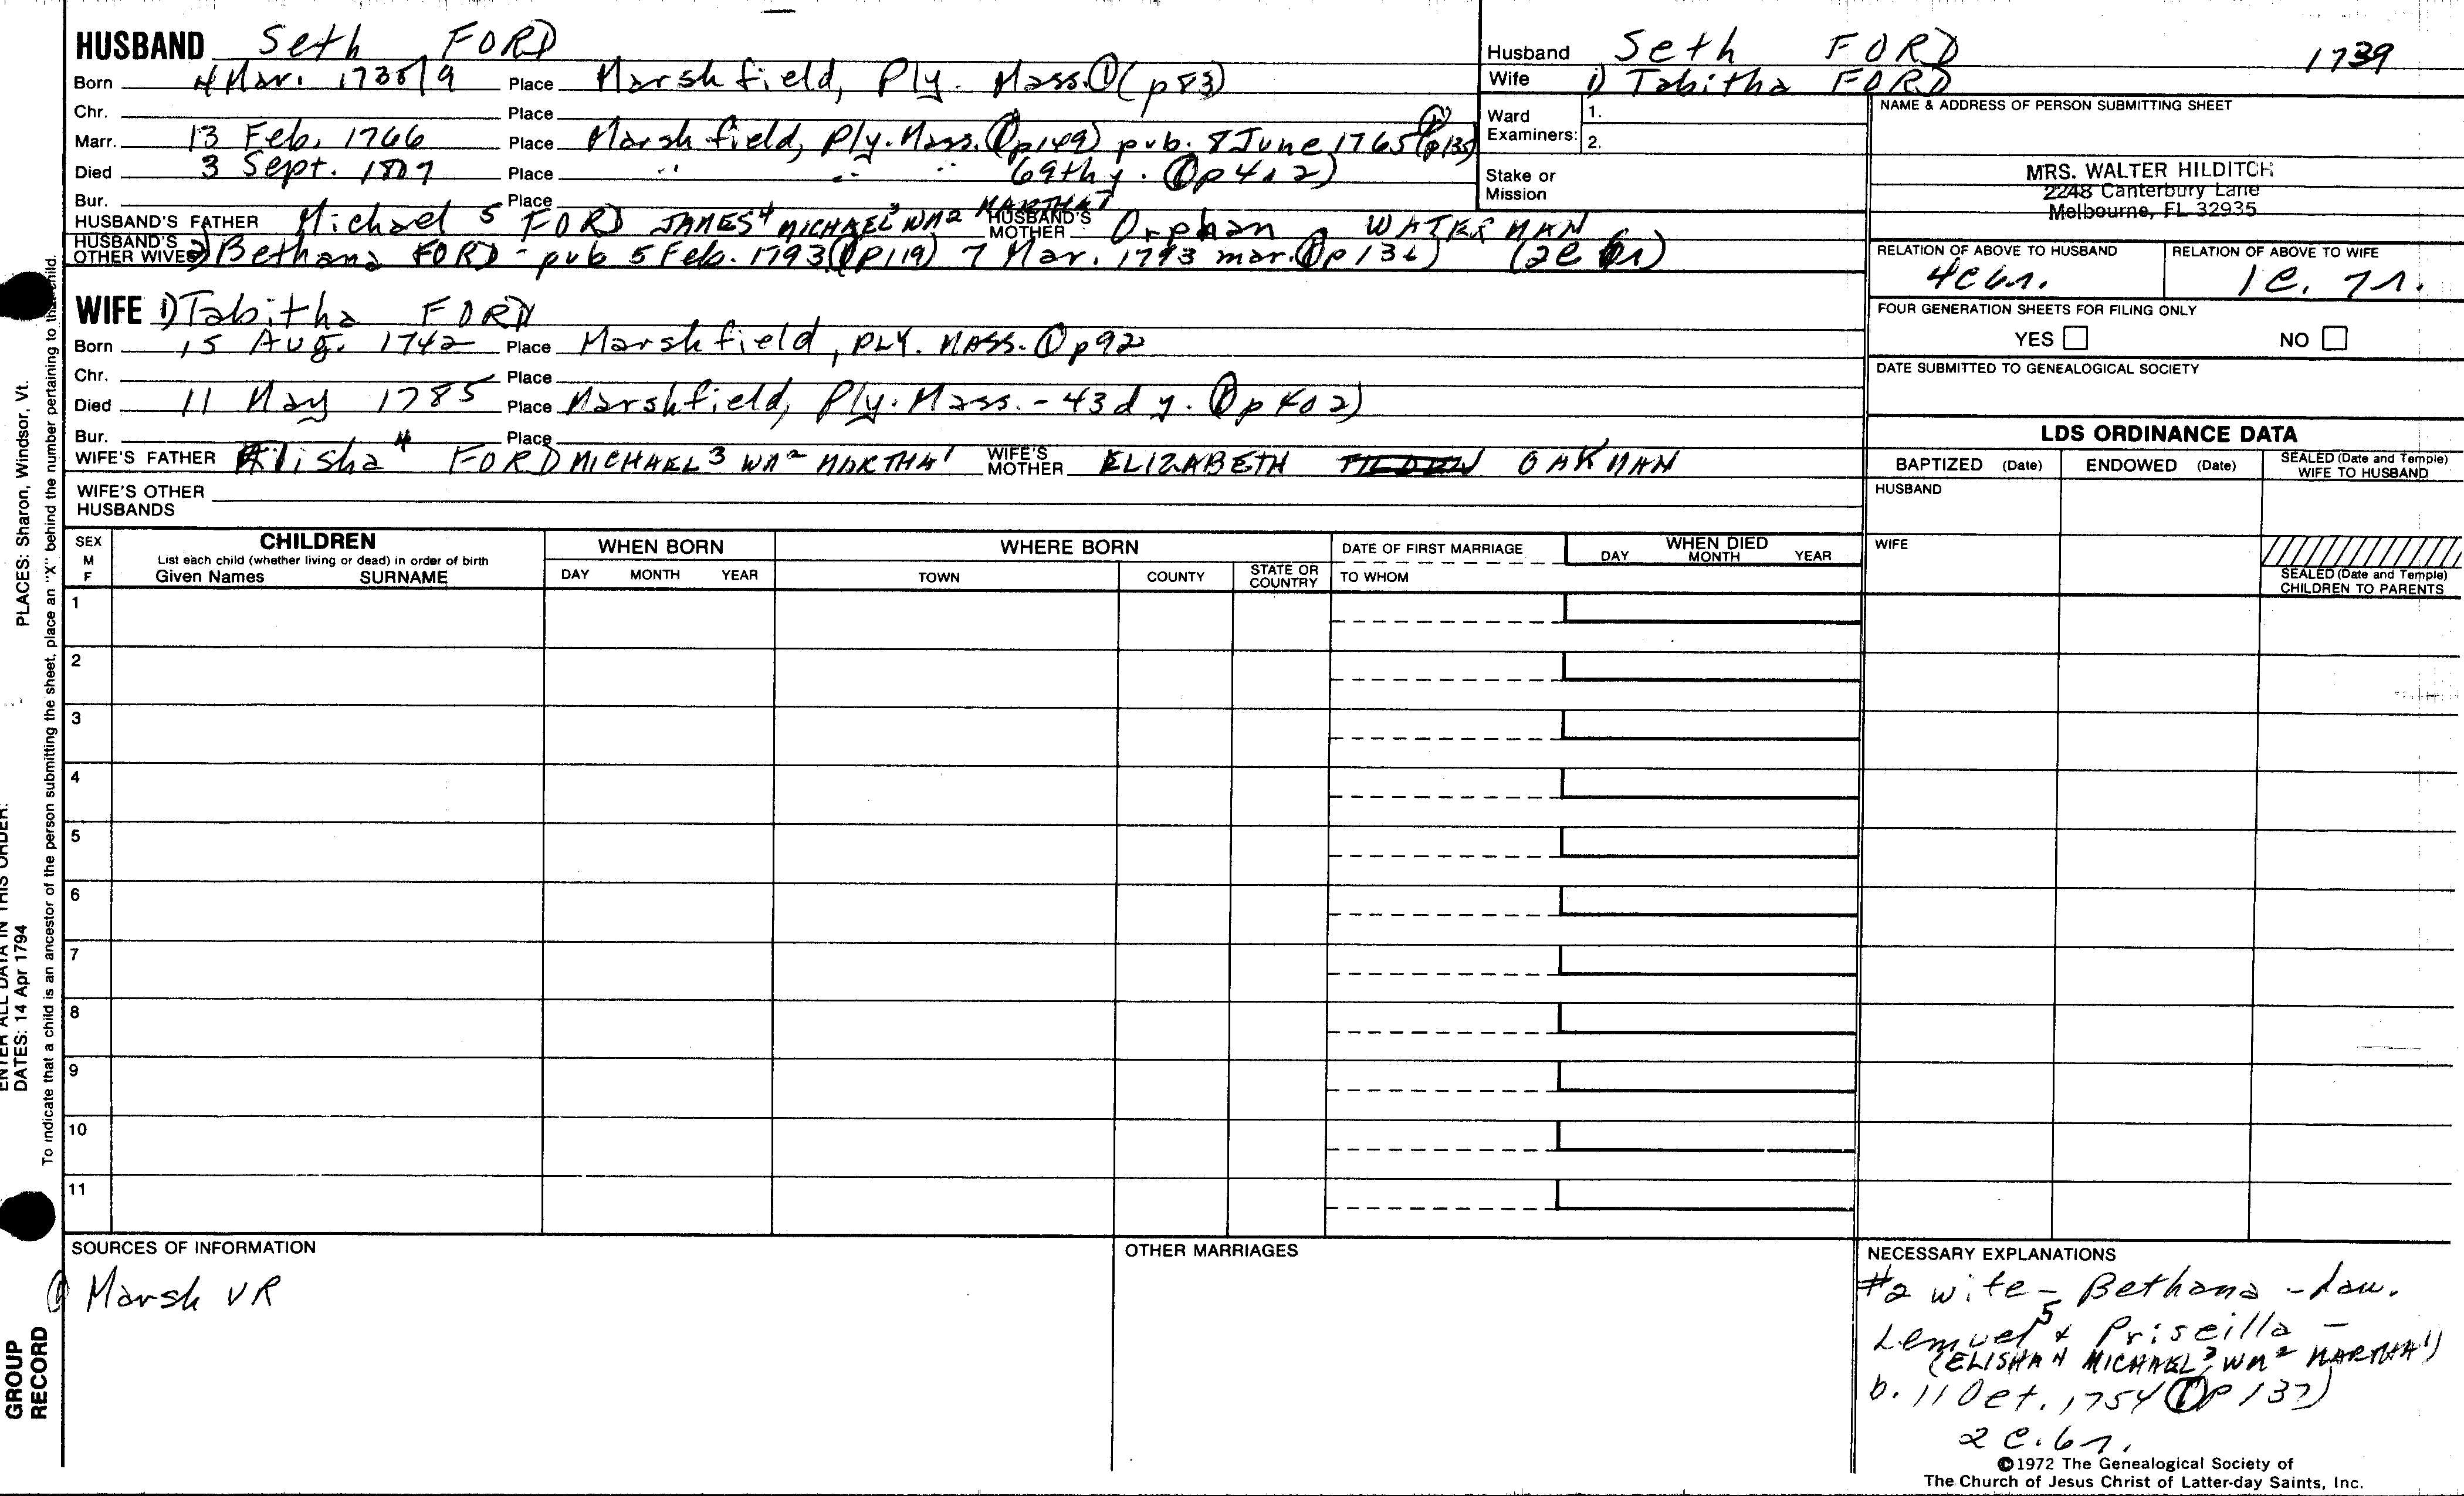 HUSBAND Seth FORD
Born 4 Mar. 1738/9 Place Marshfield, Ply. Mass. ① (p83)
Chr. Place
Marr. 13 Feb. 1766 Place Marshfield, Ply. Mass. (① p149) pub. 8 June 1765 (① p135)
Died 3 Sept. 1807 Place " " " 69th y. (① p402)
Bur. Place
HUSBAND'S FATHER Michael 5 FORD JAMES4 MICHAEL3 WM2 MARTHA1 HUSBAND'S MOTHER Orphan WATERMAN
HUSBAND'S OTHER WIVES 2) Bethana FORD - pub 5 Feb. 1793 (① p119) 7 Mar. 1793 mar. (① p136) (2C 6r)
WIFE 1) Tabitha FORD
Born 15 Aug. 1742 Place Marshfield, PLY. MASS. ① p92
Chr. Place
Died 11 May 1785 Place Marshfield, Ply. Mass. - 43d y. (① p402)
Bur. Place
WIFE'S FATHER Elisha 4 FORD MICHAEL 3 WM2 MARTHA1 WIFE'S MOTHER ELIZABETH TILDEN OAKMAN
WIFE'S OTHER
HUSBANDS
Husband Seth FORD 1739
Wife 1) Tabitha FORD
Ward Examiners: 1.
2.
Stake or
Mission
NAME & ADDRESS OF PERSON SUBMITTING SHEET
MRS. WALTER HILDITCH
2248 Canterbury Lane
Melbourne, FL 32935
RELATION OF ABOVE TO HUSBAND RELATION OF ABOVE TO WIFE
4C6r. 1C. 7r.
FOUR GENERATION SHEETS FOR FILING ONLY
YES NO
DATE SUBMITTED TO GENEALOGICAL SOCIETY
LDS ORDINANCE DATA
BAPTIZED (Date) ENDOWED (Date) SEALED (Date and Temple) WIFE TO HUSBAND
HUSBAND
WIFE
SEALED (Date and Temple)
CHILDREN TO PARENTS
SEX M F CHILDREN WHEN BORN WHERE BORN DATE OF FIRST MARRIAGE WHEN DIED
List each child (whether living or dead) in order of birth
Given Names SURNAME DAY MONTH YEAR TOWN COUNTY STATE OR COUNTRY TO WHOM DAY MONTH YEAR
1
2
3
4
5
6
7
8
9
10
11
SOURCES OF INFORMATION
① Marsh VR
OTHER MARRIAGES
NECESSARY EXPLANATIONS
#2 wife - Bethana - dau.
Lemuel5 & Priscilla -
(ELISHA4 MICHAEL3, WM2 MARTHA1)
b. 11 Oct. 1754 (① p137)
2 C. 6r.
©1972 The Genealogical Society of
The Church of Jesus Christ of Latter-day Saints, Inc.
PLACES: Sharon, Windsor, Vt.
ENTER ALL DATA IN THIS ORDER:
DATES: 14 Apr 1794
To indicate that a child is an ancestor of the person submitting the sheet, place an "X" behind the number pertaining to that child.
GROUP
RECORD